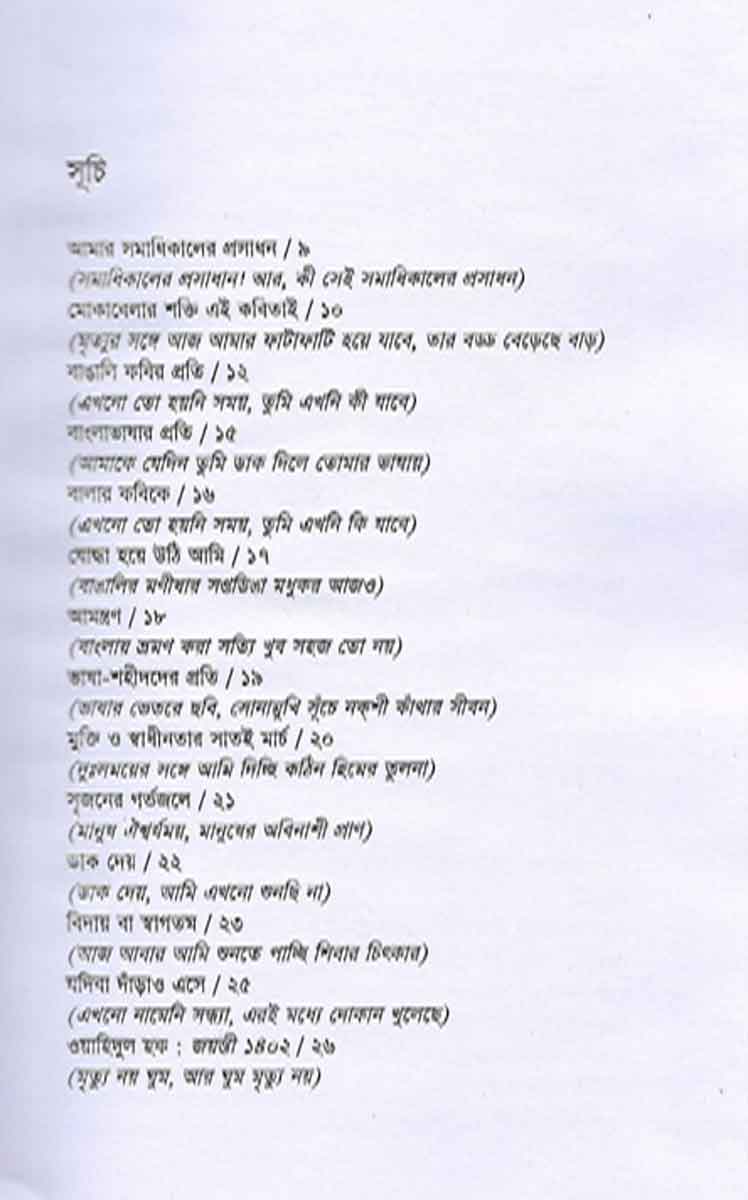 সূচি
আমার সমাধিকালের প্রসাধন / ৯
(সমাধিকালের প্রসাধন! আর, কী সেই সমাধিকালের প্রসাধন)
মোকাবেলার শক্তি এই কবিতাই / ১০
(মৃত্যুর সঙ্গে আজ আমার ফাটাফাটি হয়ে যাবে, তার বড্ড বেড়েছে বাড়)
বাঙালি কবির প্রতি / ১২
(এখনো তো হয়নি সময়, তুমি এখনি কী যাবে)
বাংলাভাষার প্রতি / ১৫
(আমাকে যেদিন তুমি ডাক দিলে তোমার ভাষায়)
বাংলার কবিকে / ১৬
(এখনো তো হয়নি সময়, তুমি এখনি কি যাবে)
যোদ্ধা হয়ে উঠি আমি / ১৭
(বাঙালির মণীষার সপ্তডিঙা মধুকর আজও)
আমন্ত্রণ / ১৮
(বাংলায় ভ্রমণ করা সত্যি খুব সহজ তো নয়)
ভাষা-শহীদদের প্রতি / ১৯
(ভাষার ভেতরে ছবি, সোনামুখি সুঁচে নক্‌শী কাঁথার সীবন)
মুক্তি ও স্বাধীনতার সাতই মার্চ / ২০
(দুঃসময়ের সঙ্গে আমি দিচ্ছি কঠিন হিমের তুলনা)
সৃজনের গর্ভজলে / ২১
(মানুষ ঐশ্বর্যময়, মানুষের অবিনাশী প্রাণ)
ডাক দেয় / ২২
(ডাক দেয়, আমি এখনো শুনছি না)
বিদায় বা স্বাগতম / ২৩
(আজ আবার আমি শুনতে পাচ্ছি শিবার চিৎকার)
যদিবা দাঁড়াও এসে / ২৫
(এখনো নামেনি সন্ধ্যা, এরই মধ্যে দোকান খুলেছে)
ওয়াহিদুল হক : জয়ন্তী ১৪০২ / ২৬
(মৃত্যু নয় ঘুম, আর ঘুম মৃত্যু নয়)